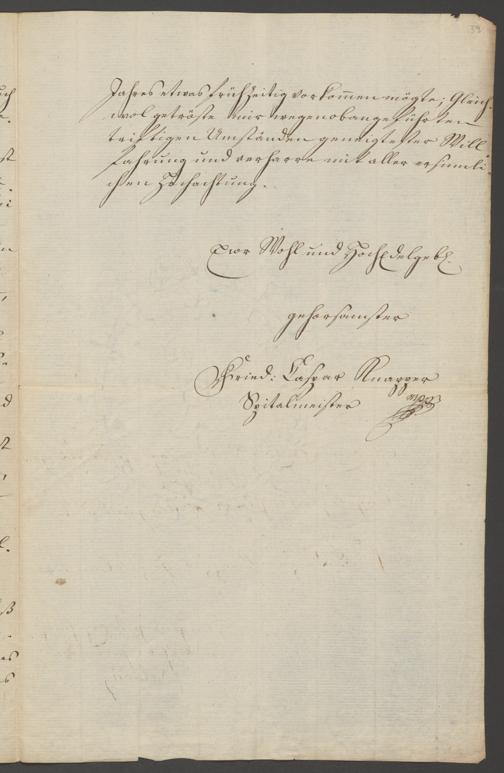 39
Jahres etwas frühzeitig vorkommen mögte; Gleich-
wol getröste mir wegen obangeführten
triftigen Umständen geneigtester Will-
fahrung und verharre mit aller ersinnli-
chen Hochachtung.
Euer Wohl und HochEdelgebl.
gehorsamster
Fried: Caspar Knapper
Spitalmeister